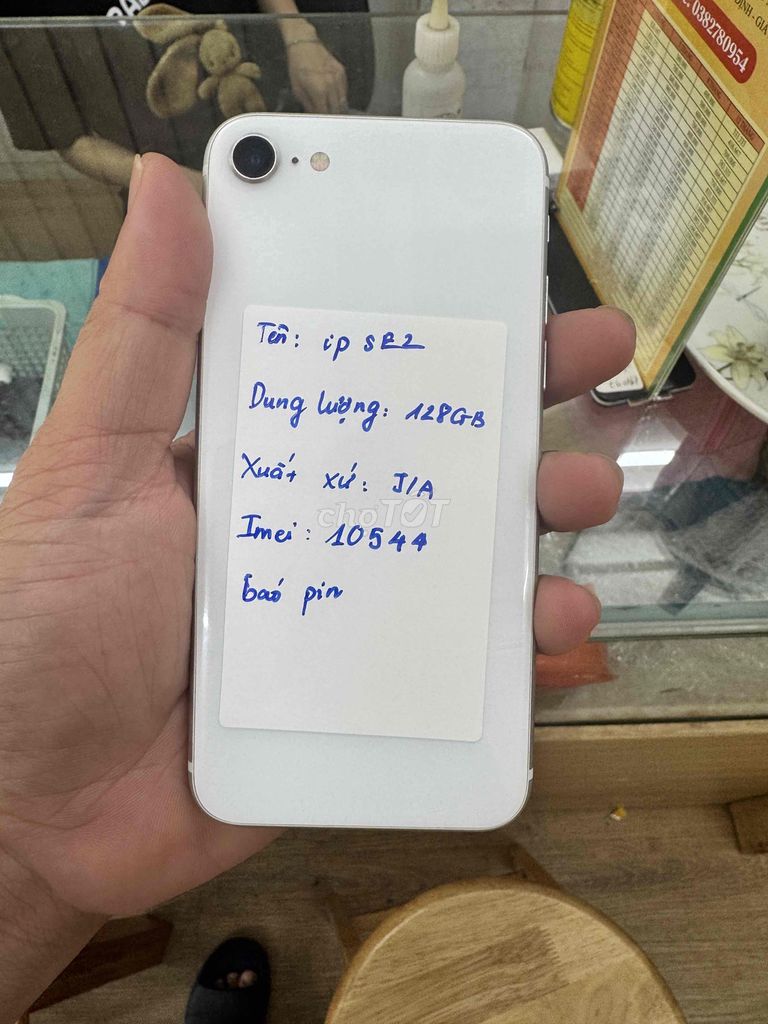 0382780954
Tên: ip SE2
Dung lượng: 128GB
Xuất xứ: J/A
chợTỐT
Imei: 10544
báo pin